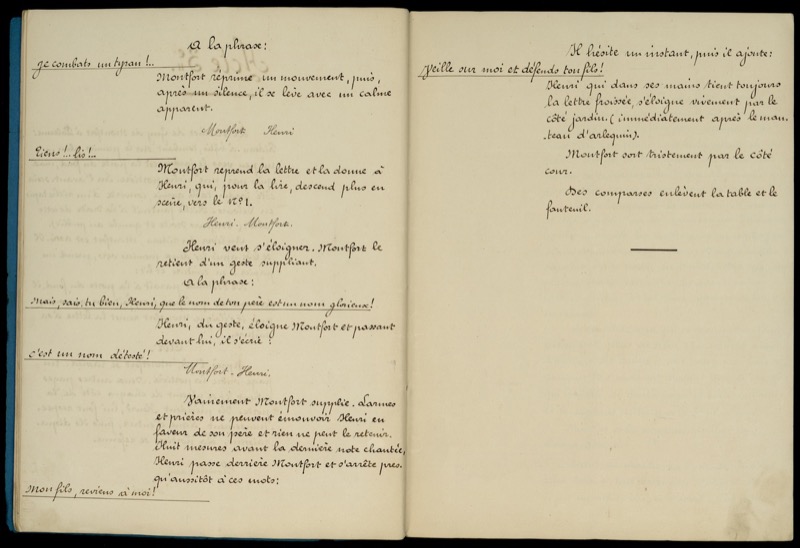 A la phrase:
je combats un tyran!..
Montfort réprime un mouvement, puis,
après un silence, il se lève avec un calme
apparent.
Montfort Henri
Tiens!.. lis!..
Montfort reprend la lettre et la donne à
Henri, qui, pour la lire, descend plus en
scène, vers le No 1.
Henri. Montfort.
Henri veut s'éloigner. Montfort le
retient d'un geste suppliant.
A la phrase:
Mais, sais-tu bien, Henri, que le nom de ton père est un nom glorieux!
Henri, du geste, éloigne Montfort et passant
devant lui, il s'écrie:
c'est un nom détesté!
Montfort. Henri.
Vainement Montfort supplie. Larmes
et prières ne peuvent émouvoir Henri en
faveur de son père et rien ne peut le retenir.
Huit mesures avant la dernière note chantée,
Henri passe derrière Montfort et s'arrête pres-
qu'aussitôt à ces mots:
Mon fils, reviens à moi!
Il hésite un instant, puis il ajoute:
Veille sur moi et défends ton fils!
Henri qui dans ses mains tient toujours
la lettre froissée, s'éloigne vivement par le
côté jardin. (immédiatement après le man-
teau d'arlequin).
Montfort sort tristement par le côté
cour.
Des comparses enlèvent la table et le
fauteuil.